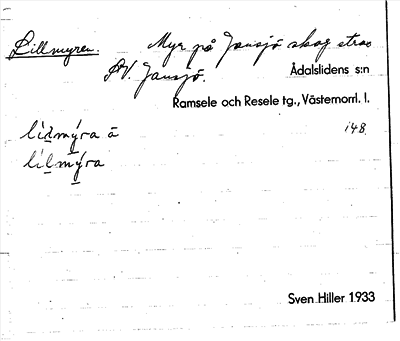 Lillmyren. Myr på Jansjö skog strax
SV. Jansjö.
Ådalslidens s:n
Ramsele och Resele tg., Västernorrl. l.
148
lìdmýra ā
lìlmýra
Sven Hiller 1933